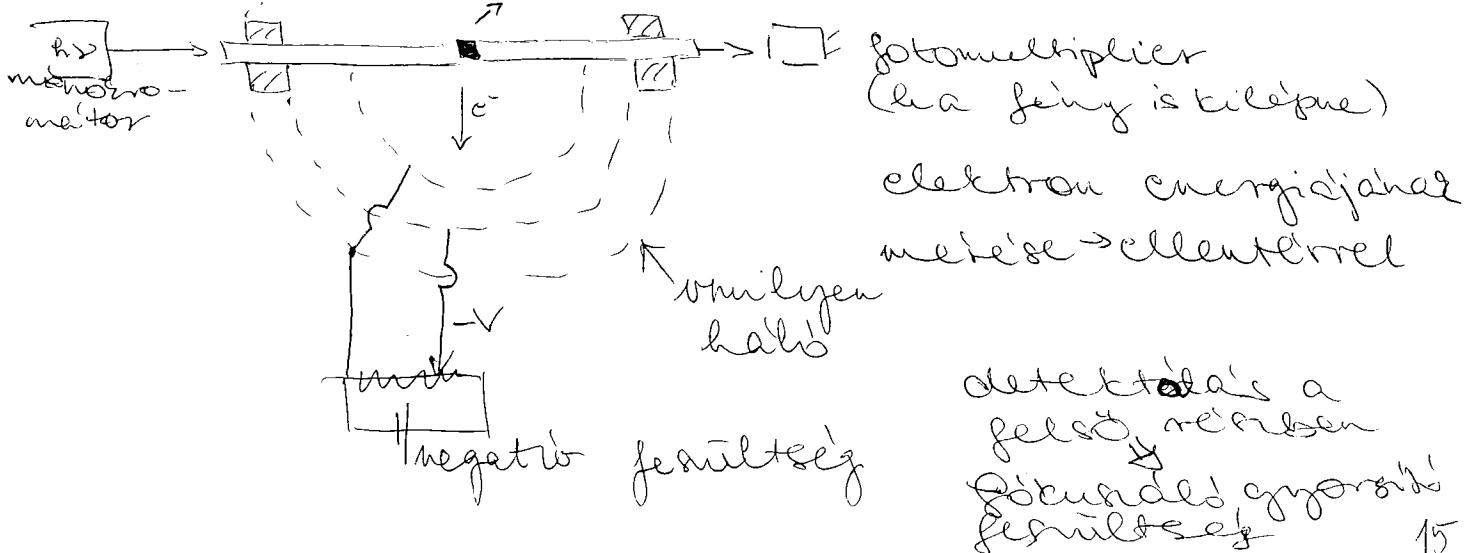 hν
monokro-
mátor
e⁻
fotomultiplier
(ha fény is kilépne)
elektron energiájának
mérése → ellentérrel
vmilyen
háló
-V
negatív feszültség
detektálás a
felső részben
fókuszáló gyorsító
feszültség
15